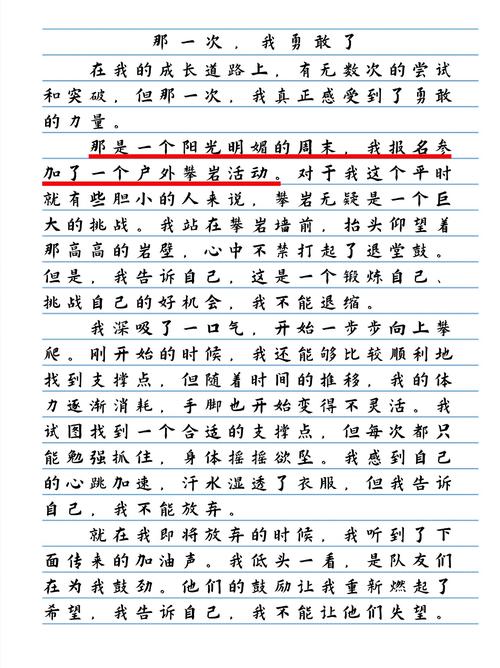 那一次，我勇敢了
在我的成长道路上，有无数次的尝试
和突破，但那一次，我真正感受到了勇敢
的力量。
那是一个阳光明媚的周末，我报名参
加了一个户外攀岩活动。对于我这个平时
就有些胆小的人来说，攀岩无疑是一个巨
大的挑战。我站在攀岩墙前，抬头仰望着
那高高的岩壁，心中不禁打起了退堂鼓。
但是，我告诉自己，这是一个锻炼自己、
挑战自己的好机会，我不能退缩。
我深吸了一口气，开始一步步向上攀
爬。刚开始的时候，我还能够比较顺利地
找到支撑点，但随着时间的推移，我的体
力逐渐消耗，手脚也开始变得不灵活。我
试图找到一个合适的支撑点，但每次都只
能勉强抓住，身体摇摇欲坠。我感到自己
的心跳加速，汗水湿透了衣服，但我告诉
自己，我不能放弃。
就在我即将放弃的时候，我听到了下
面传来的加油声。我低头一看，是队友们
在为我鼓劲。他们的鼓励让我重新燃起了
希望，我告诉自己，我不能让他们失望。